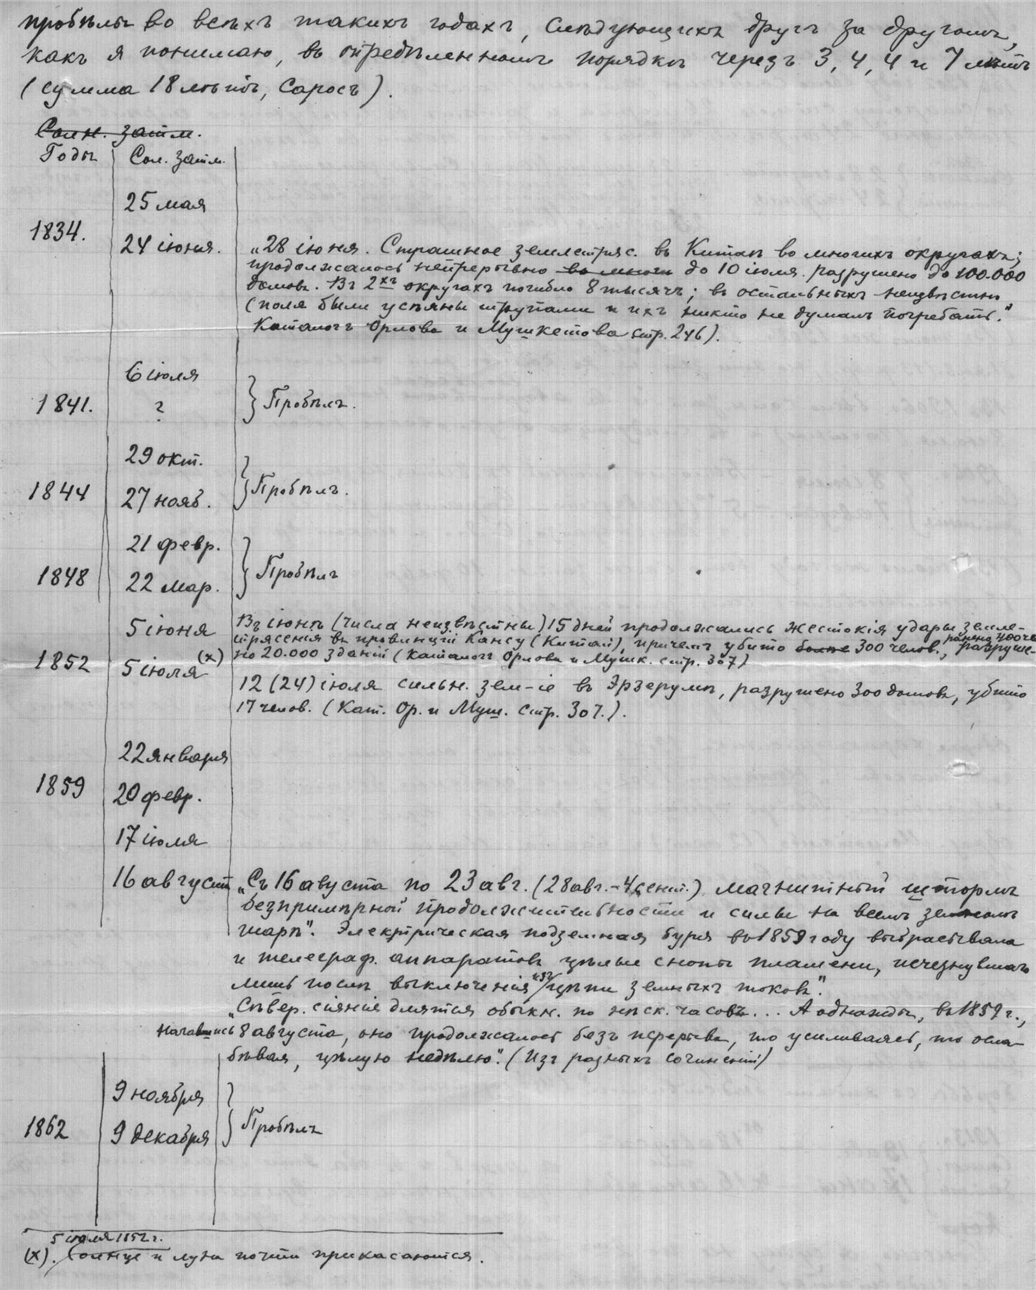 пробѣлы во всѣхъ такихъ годахъ, слѣдующихъ другъ за другомъ,
какъ я понимаю, въ опредѣленномъ порядкѣ черезъ 3, 4, 4 и 7 лѣтъ
(сумма 18 лѣтъ, Саросъ).
Солн. затм.
Годы Сол. затм.
25 мая
1834.
24 іюня. „28 іюня. Страшное землетряс. въ Китаѣ во многихъ округахъ;
продолжалось непрерывно во многи до 10 іюля. разрушено до 100.000
домовъ. Въ 2хъ округахъ погибло 8 тысячъ; въ остальныхъ неизвѣстно
(поля были усѣяны трупами и ихъ никто не думалъ погребать."
Каталогъ Орлова и Мушкетова стр. 246).
6 іюля
1841. } Пробѣлъ.
?
29 окт.
1844 } Пробѣлъ.
27 нояб.
21 февр.
1848 } Пробѣлъ
22 мар.
5 іюня Въ іюнѣ (числа неизвѣстны) 15 дней продолжались жестокія удары земле-
трясенія въ провинціи Кансу (Китай), причемъ убито болѣе 300 челов., ранено 400 чел., разруше-
1852 но 20.000 зданій (каталогъ Орлова и Мушк. стр. 307)
5 іюля (x)
12 (24) іюля сильн. зем-іе въ Эрзерумѣ, разрушено 300 домовъ, убито
17 челов. (Кат. Ор. и Муш. стр. 307.).
22 января
1859
20 февр.
17 іюля
16 август „Съ 16 августа по 23 авг. (28 авг. - 4 сент.) магнитный штормъ
безпримѣрной продолжительности и силы на всемъ земномъ
шарѣ". Электрическая подземная буря въ 1859 году выбрасывала
и телеграф. аппаратовъ цѣлые снопы пламени, исчезнувшаго
лишь послѣ выключенія "изъ" цѣпи земныхъ токовъ".
„Сѣвер. сіяніе длятся обыкн. по нѣск. часовъ... А однажды, въ 1859 г.,
начавшись 8 августа, оно продолжалось безъ перерыва, то усиливаясь, то осла-
бѣвая, цѣлую недѣлю". (Изъ разныхъ сочиненій)
9 ноября
1862 } Пробѣлъ
9 декабря
5 іюля 1852 г.
(x). Солнце и луна почти прикасаются.